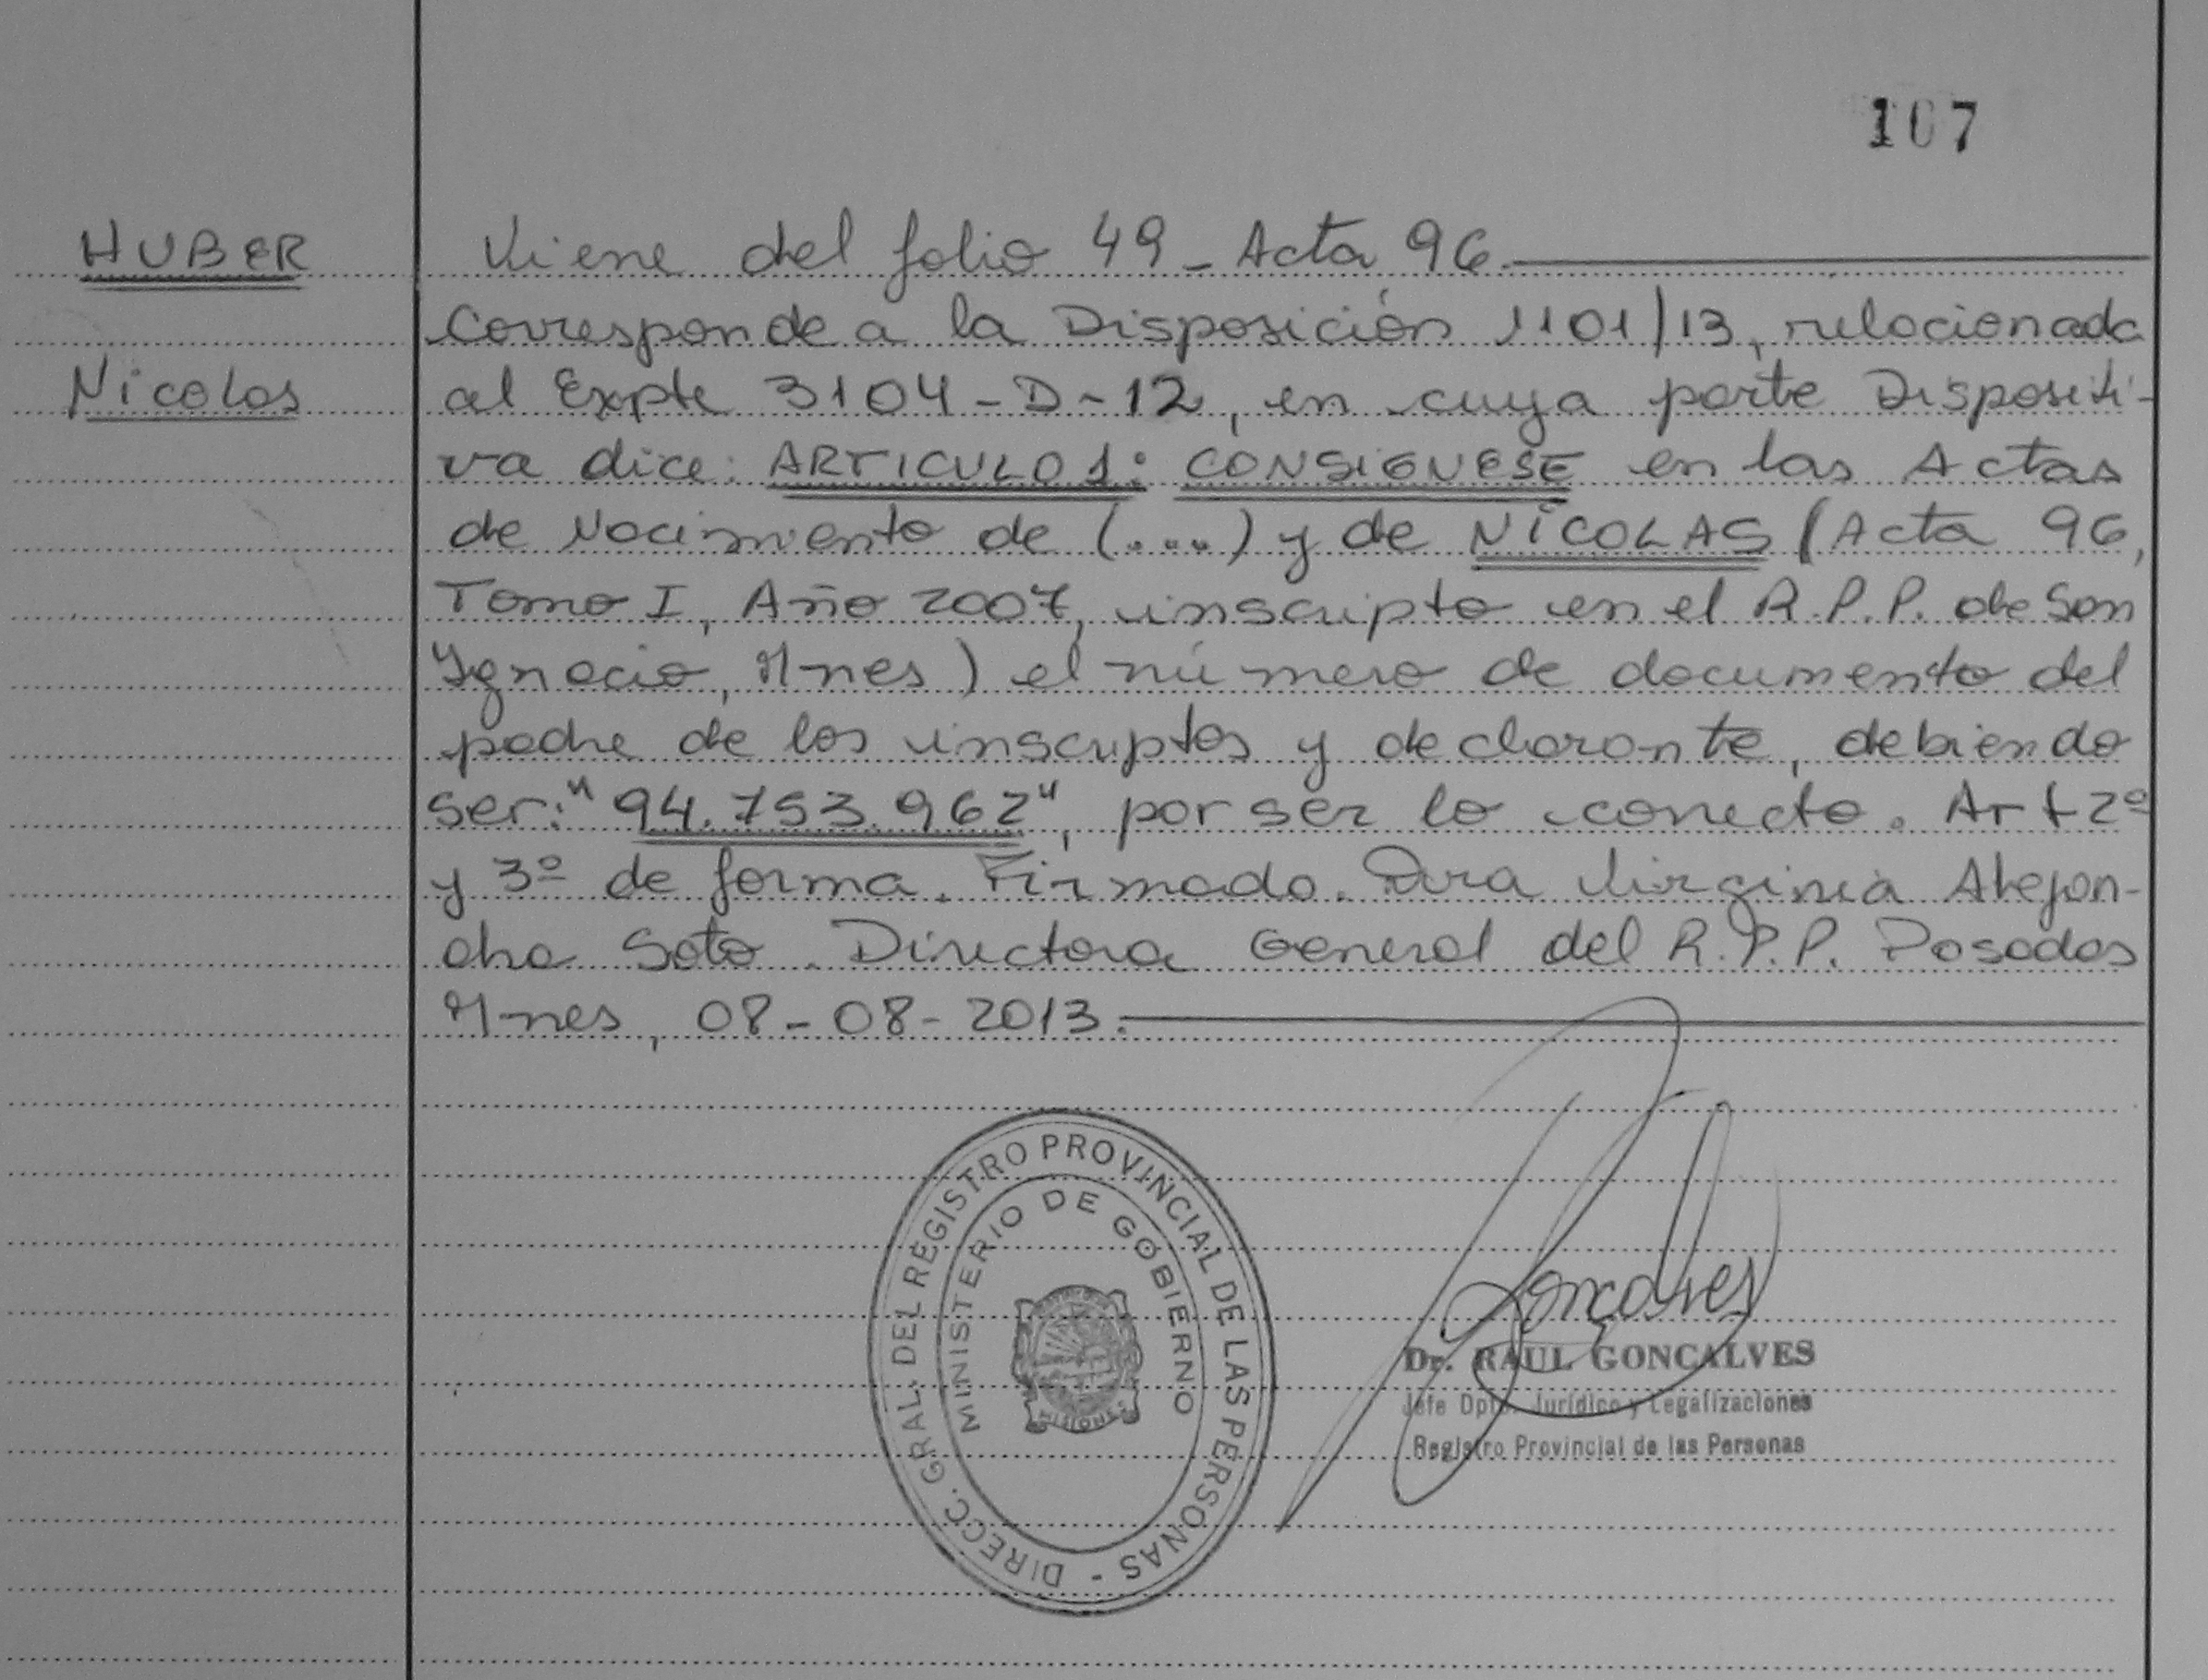 107
HUBER
Nicolas
Viene del folio 49 - Acta 96.
Corresponde a la Disposición 1101/13, relacionada
al Expte 3104-D-12, en cuya parte Dispositi-
va dice: ARTICULO 1: CONSIGNESE en las Actas
de Nacimiento de (....) y de NICOLAS (Acta 96,
Tomo I, Año 2007, inscripto en el R.P.P. de San
Ignacio, Mnes) el número de documento del
padre de los inscriptos y declarante, debiendo
ser: "94.753.962", por ser lo correcto. Art 2º
y 3º de forma. Firmado. Dra Virginia Alejan-
dra Soto. Directora General del R.P.P. Posadas
Mnes, 08-08-2013.
DIRECC. GRAL. DEL REGISTRO PROVINCIAL DE LAS PERSONAS -
MINISTERIO DE GOBIERNO
MISIONES
Gonçalves
Dr. RAUL GONCALVES
Jefe Dpto. Jurídico y Legalizaciones
Registro Provincial de las Personas